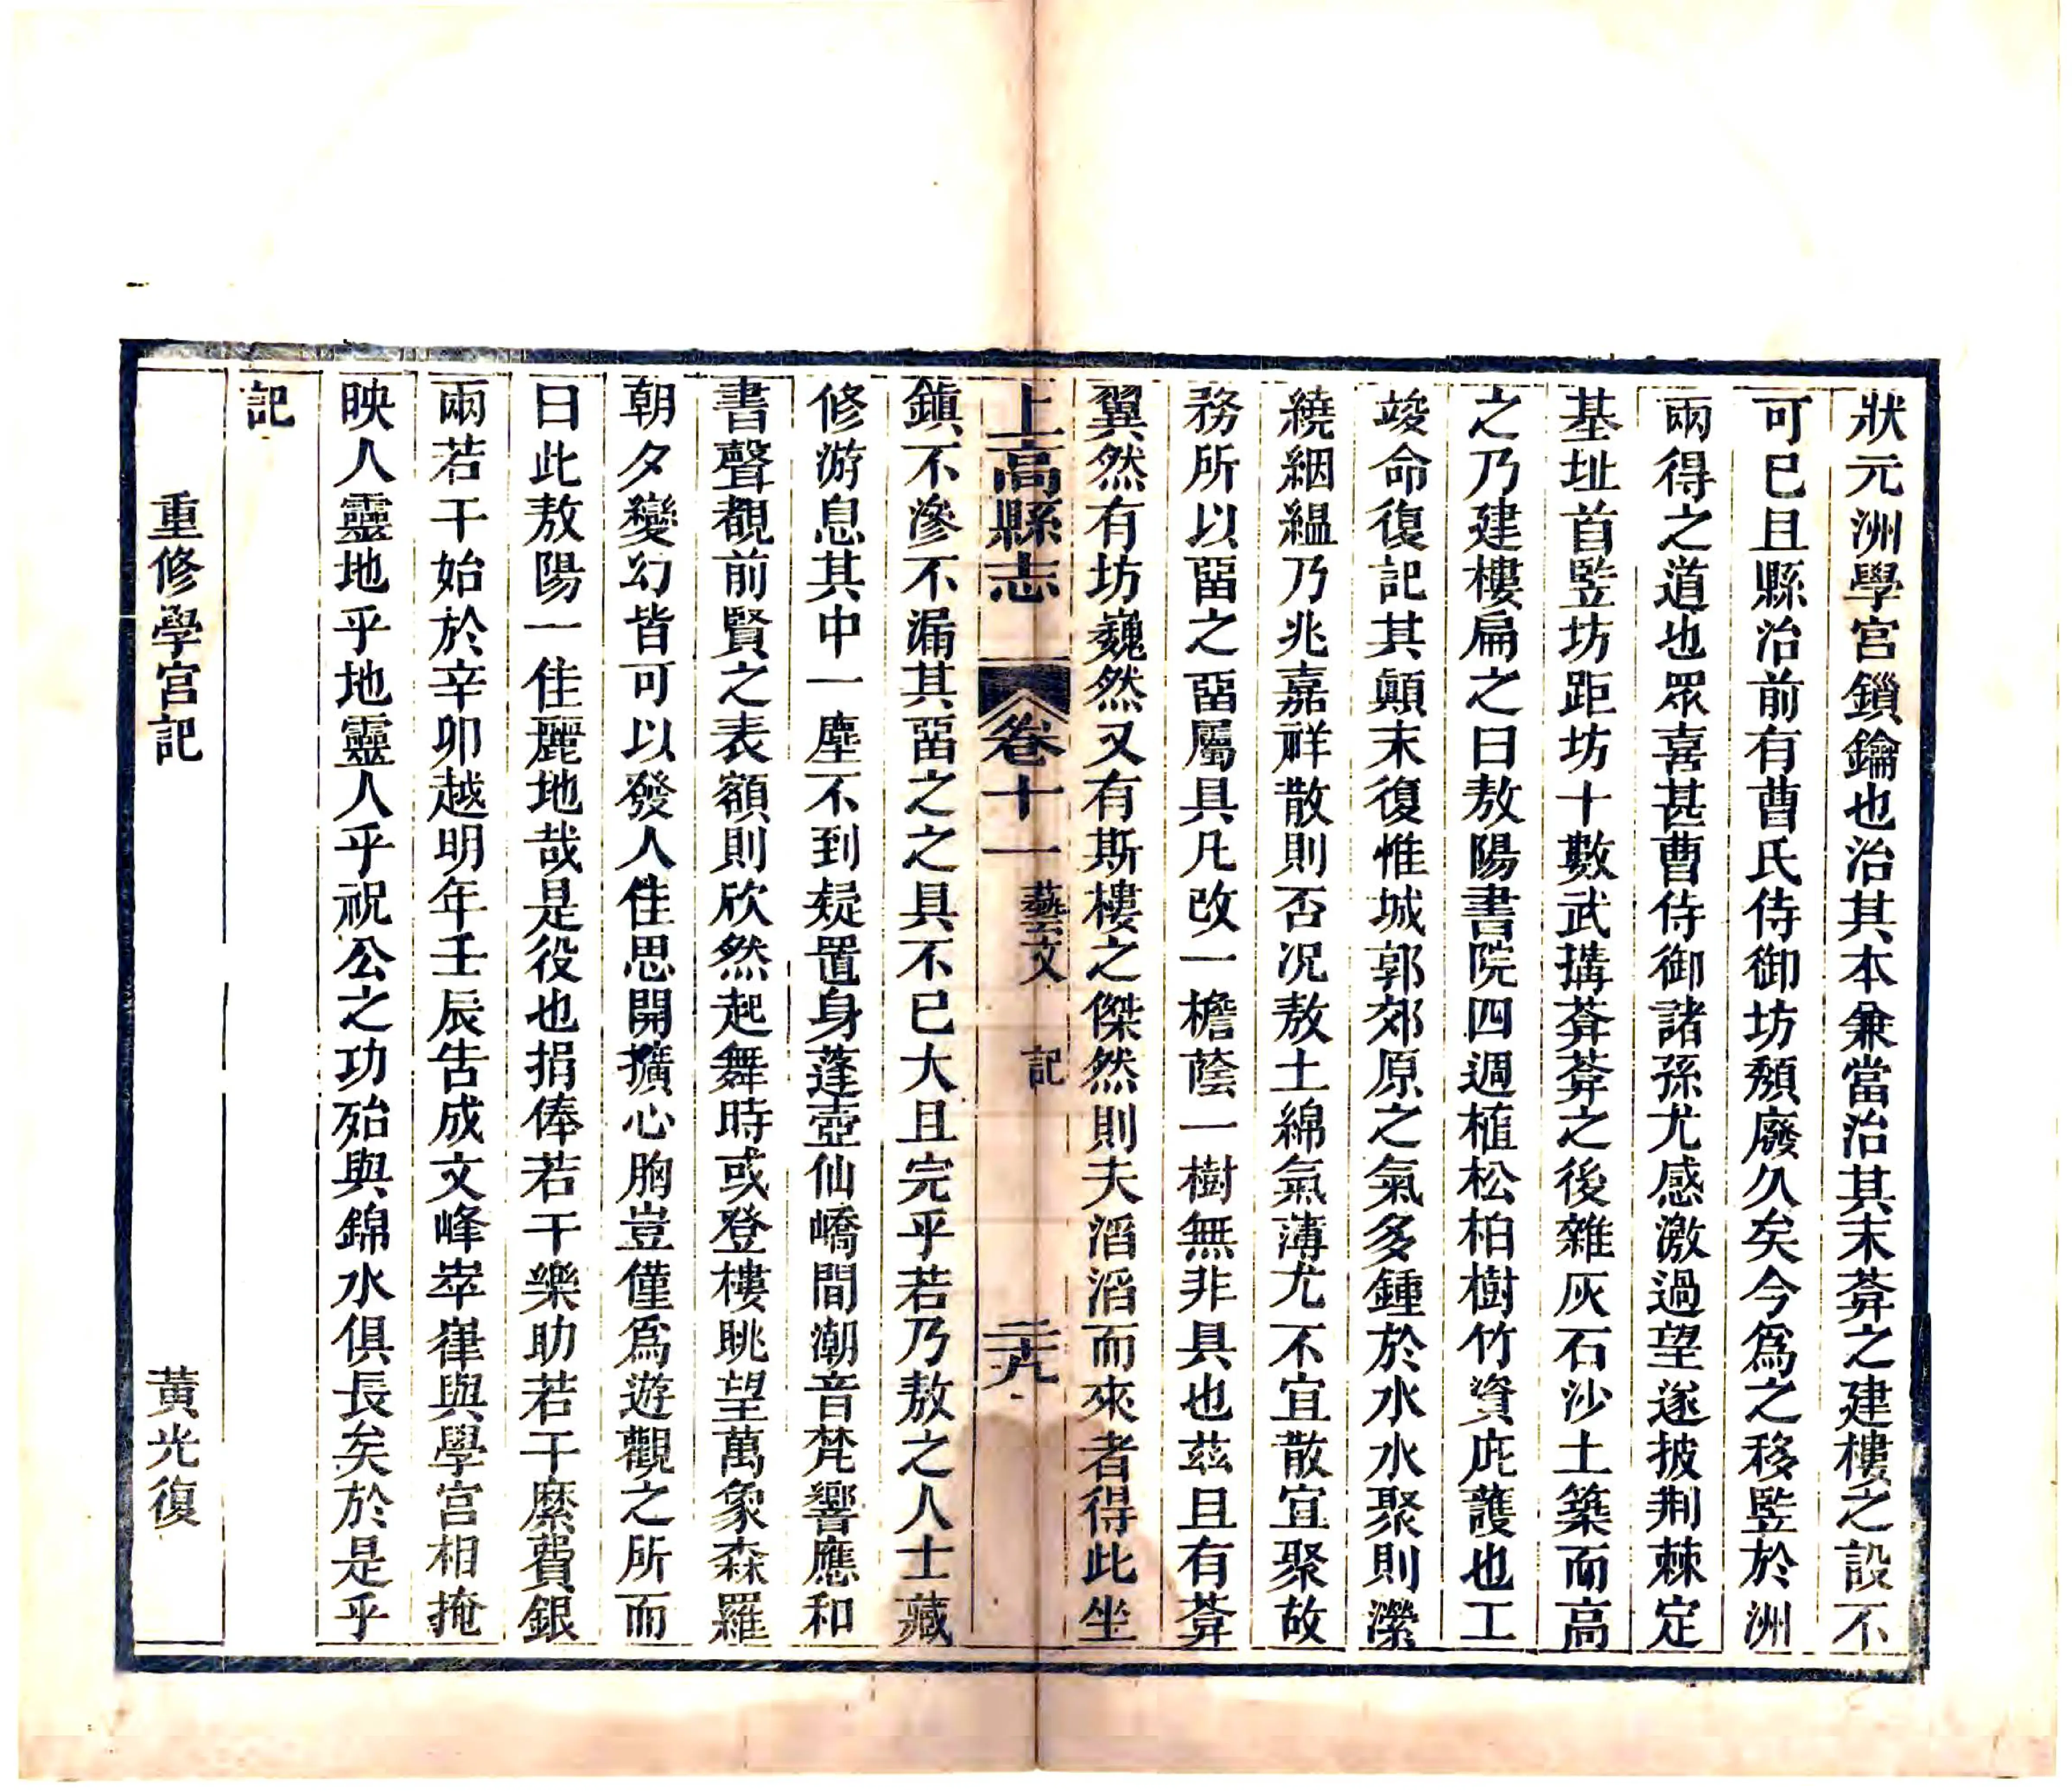 狀元洲學宮鎖鑰也治其本兼當治其末葬之建樓之設不
可已且縣治前有曹氏侍御坊頹廢久矣今爲之移竪於洲
兩得之道也眾喜甚曹侍御諸孫尤感激過望遂披荆棘定
基址首竪坊距坊十數武搆葬葬之後雜灰石沙土築而高
之乃建樓扁之曰敖陽書院四週植松柏樹竹資庇護也工
竣命復記其顛末復惟城郭郊原之氣多鍾於水水聚則瀠
繞絪縕乃兆嘉祥散則否况敖土綿氣薄尤不宜散宜聚故
務所以畱之畱屬具凡改一檐蔭一樹無非具也茲且有葬
翼然有坊巍然又有斯樓之傑然則夫滔滔而來者得此坐
上高縣志 卷十一 藝文 記 二十九
鎮不滲不漏其畱之之具不已大且完乎若乃敖之人士藏
修游息其中一塵不到疑置身蓬壺仙嶠間潮音梵響應和
書聲覩前賢之表額則欣然起舞時或登樓眺望萬象森羅
朝夕變幻皆可以發人佳思開擴心胸豈僅爲遊觀之所而
曰此敖陽一佳麗地哉是役也捐俸若干樂助若干縻費銀
兩若干始於辛卯越明年壬辰告成文峰崒嵂與學宮相掩
映人靈地乎地靈人乎祝公之功殆與錦水俱長矣於是乎
記
重修學宮記 黃光復